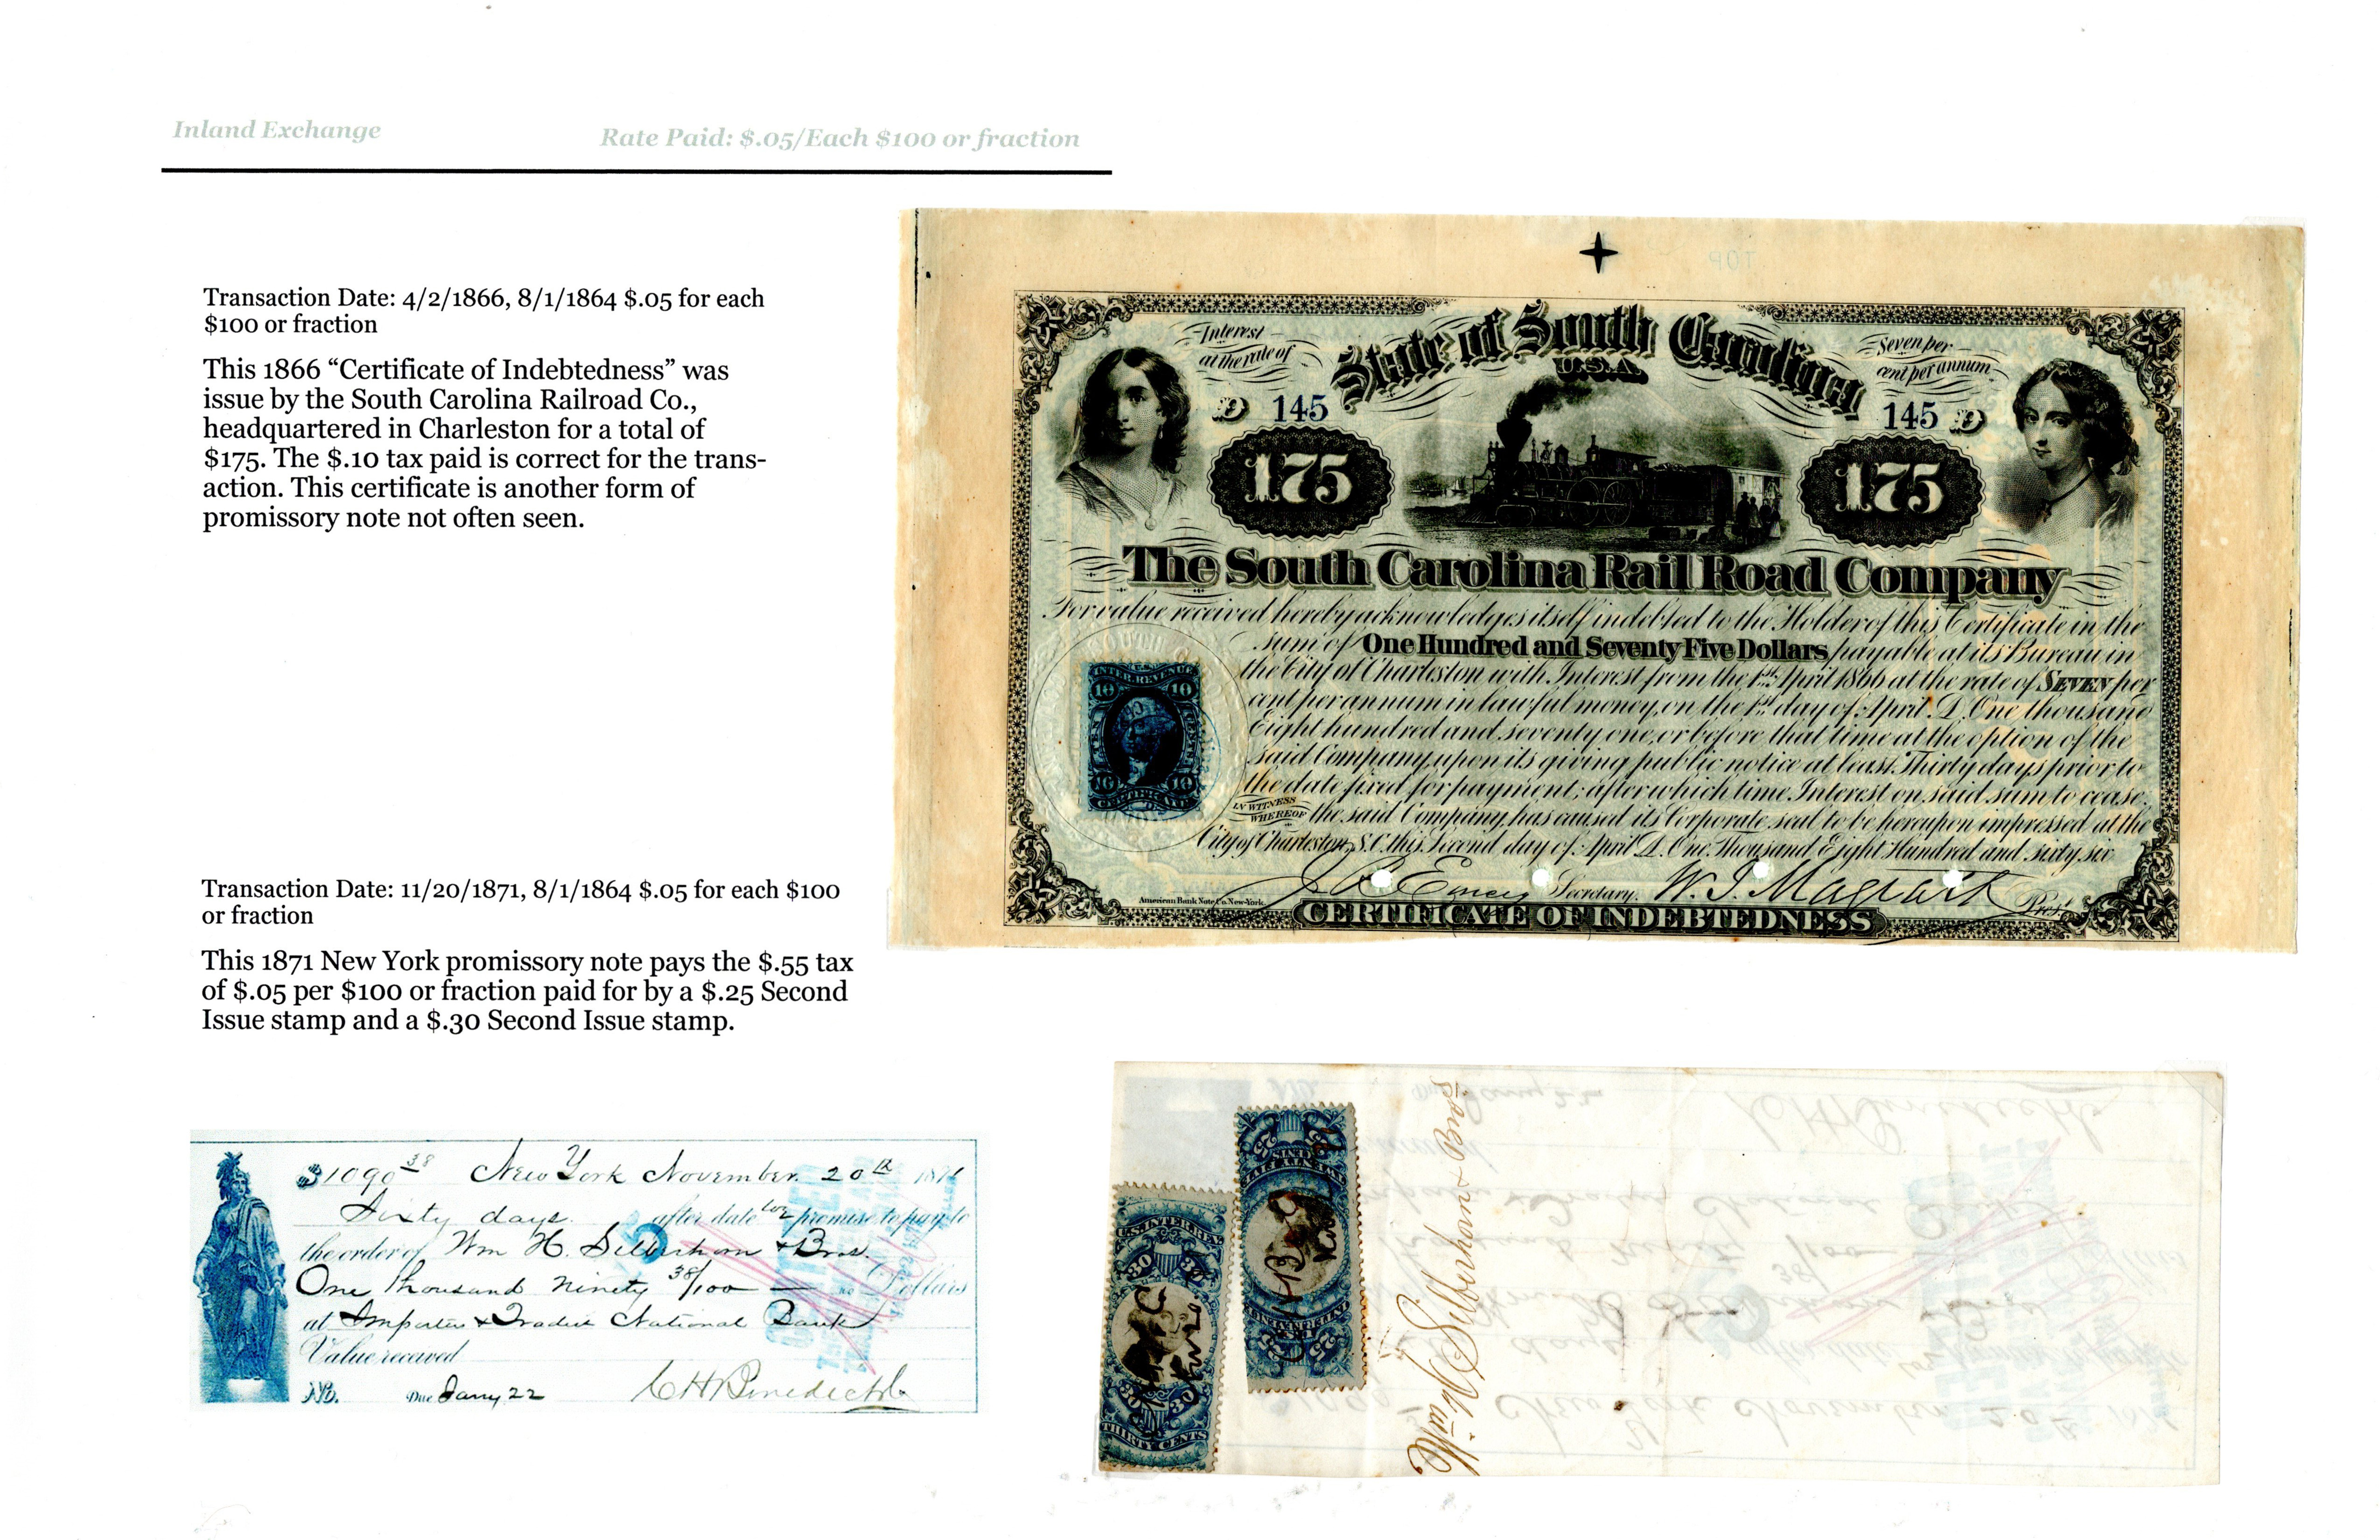 Inland Exchange
Rate Paid: $.05/Each $100 or fraction
Transaction Date: 4/2/1866, 8/1/1864 $.05 for each
$100 or fraction
This 1866 “Certificate of Indebtedness” was
issue by the South Carolina Railroad Co.,
headquartered in Charleston for a total of
$175. The $.10 tax paid is correct for the trans-
action. This certificate is another form of
promissory note not often seen.
TOP
Interest
at the rate of
State of South Carolina
U.S.A.
Seven per
cent per annum
D 145
145 D
175
175
The South Carolina Rail Road Company
For value received hereby acknowledges itself indebted to the Holder of this Certificate in the
sum of One Hundred and Seventy Five Dollars payable at its Bureau in
the City of Charleston with Interest from the 1st April 1866 at the rate of SEVEN per
cent per annum in lawful money, on the 1st day of April A.D. One thousand
Eight hundred and seventy one, or before that time at the option of the
said Company, upon its giving public notice at least Thirty days prior to
the date fixed for payment; after which time Interest on said sum to cease.
IN WITNESS
WHEREOF the said Company, has caused its Corporate seal to be hereupon impressed at the
City of Charleston, S.C. this Second day of April A.D. One Thousand Eight Hundred and sixty six
J R Emery Secretary. W. J. Magrath Pres.t
American Bank Note Co. New-York.
CERTIFICATE OF INDEBTEDNESS
INTER. REVENUE
10 10
TEN CENTS
10 10
CERTIFICATE
Transaction Date: 11/20/1871, 8/1/1864 $.05 for each $100
or fraction
This 1871 New York promissory note pays the $.55 tax
of $.05 per $100 or fraction paid for by a $.25 Second
Issue stamp and a $.30 Second Issue stamp.
$1090 38 New York November 20th 1871
Sixty days after date we promise to pay to
the order of Wm H. Silberhorn & Bros.
One Thousand ninety 38/100 Dollars
at Importers & Traders National Bank
Value received
No. Due Jany 22 C H Benedict
U.S. INTER. REV.
30 30
30 30
THIRTY CENTS
25 25
25 25
Wm. H. Silberhorn & Bros